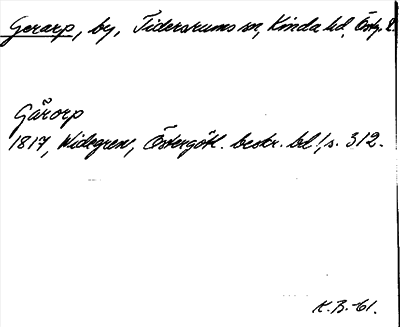 Gerarp, by, Tidersrums sn, Kinda hd, Östg. l.
Gårorp
1817, Widegren, Östergötl. beskr. bd 1, s. 312.
K.B. -61.